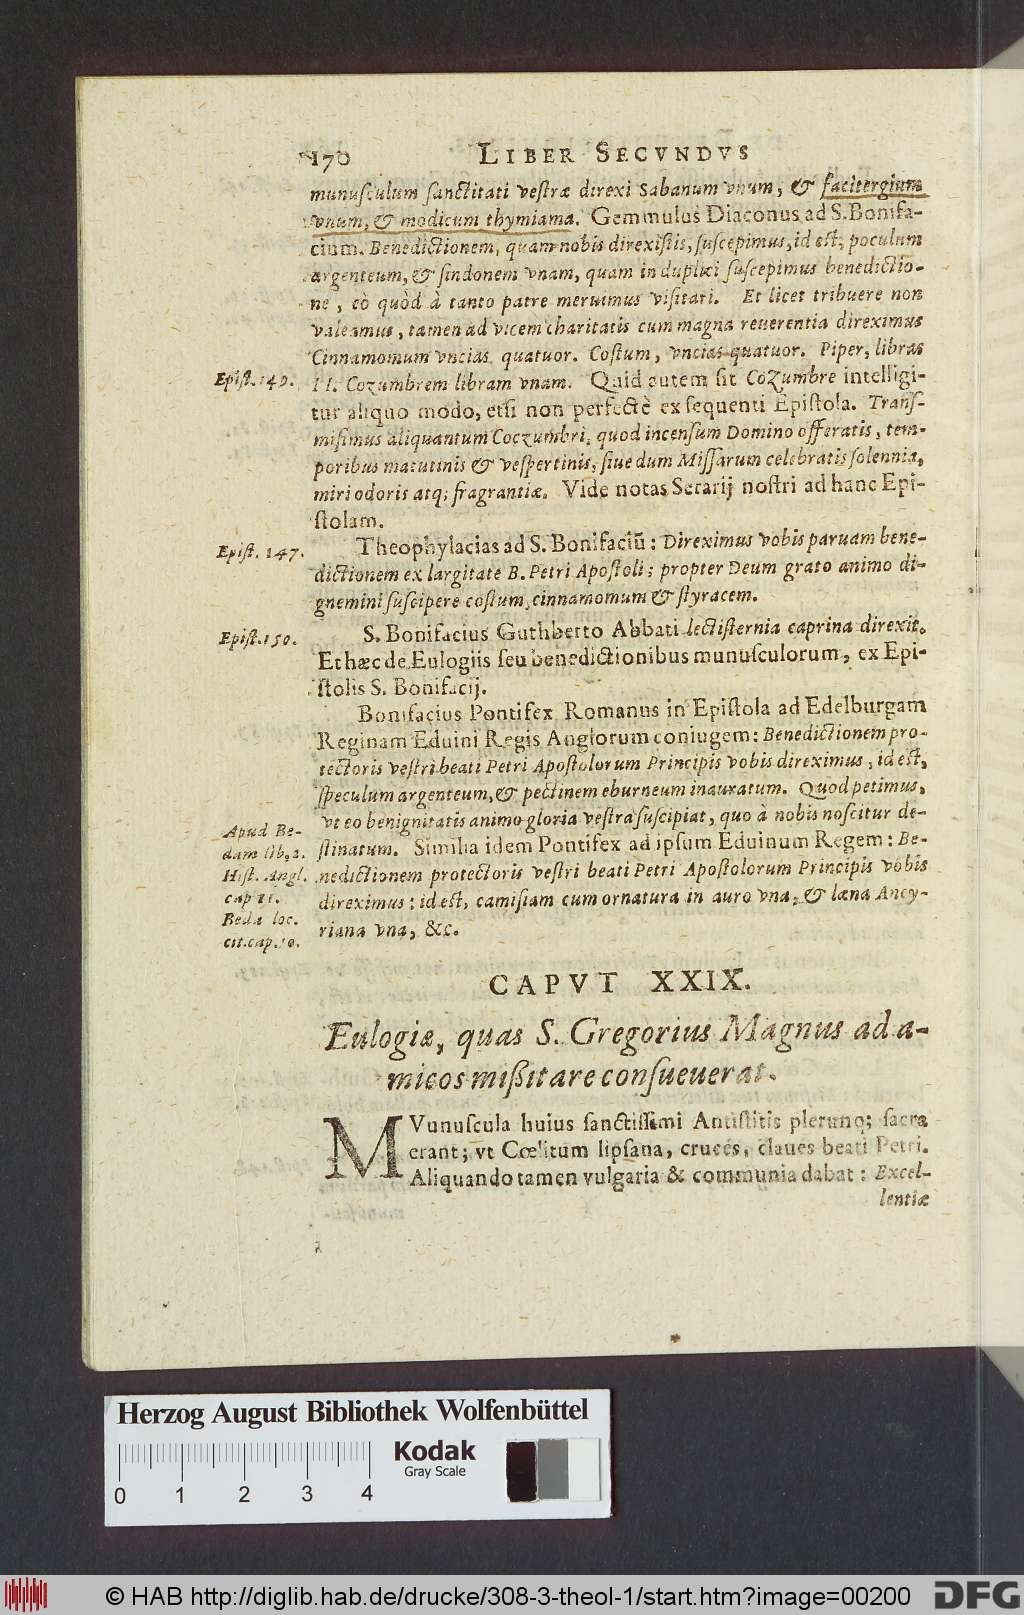 170 LIBER SECVNDVS
munusculum sanctitati vestræ direxi sabanum vnum, & facitergium
vnum, & modicum thymiama. Gemmulus Diaconus ad S. Bonifa-
cium. Benedictionem, quam nobis direxistis, suscepimus, id est, poculum
argenteum, & sindonem vnam, quam in duplici suscepimus benedictio-
ne, eò quòd à tanto patre meruimus visitari. Et licet tribuere non
valeamus, tamen ad vicem charitatis cum magna reuerentia direximus
Cinnamomum vncias quatuor. Costum, vncias quatuor. Piper, libras
Epist. 149.
II. Cozumbrem libram vnam. Quid autem sit Cozumbre intelligi-
tur aliquo modo, etsi non perfectè ex sequenti Epistola. Trans-
misimus aliquantum Coczumbri, quod incensum Domino offeratis, tem-
poribus matutinis & vespertinis, siue dum Missarum celebratis solennia,
miri odoris atq; fragrantiæ. Vide notas Serarij nostri ad hanc Epi-
stolam.
Epist. 147.
Theophylacias ad S. Bonifaciū: Direximus vobis paruam bene-
dictionem ex largitate B. Petri Apostoli; propter Deum grato animo di-
gnemini suscipere costum, cinnamomum & styracem.
Epist. 150.
S. Bonifacius Guthberto Abbati lectisternia caprina direxit.
Et hæc de Eulogiis seu benedictionibus munusculorum, ex Epi-
stolis S. Bonifacij.
Bonifacius Pontifex Romanus in Epistola ad Edelburgam
Reginam Eduini Regis Anglorum coniugem: Benedictionem pro-
tectoris vestri beati Petri Apostolorum Principis vobis direximus, id est,
speculum argenteum, & pectinem eburneum inauratum. Quod petimus,
vt eo benignitatis animo gloria vestra suscipiat, quo à nobis noscitur de-
Apud Be-
dam lib. 2.
Hist. Angl.
cap 11.
Beda loc.
cit. cap. 10.
stinatum. Similia idem Pontifex ad ipsum Eduinum Regem: Be-
nedictionem protectoris vestri beati Petri Apostolorum Principis vobis
direximus: id est, camisiam cum ornatura in auro vna, & læna Ancy-
riana vna, &c.
CAPVT XXIX.
Eulogiæ, quas S. Gregorius Magnus ad a-
micos missitare consueuerat.
MVnuscula huius sanctissimi Antistitis plerunq; sacra
erant; vt Cœlitum lipsana, cruces, claues beati Petri.
Aliquando tamen vulgaria & communia dabat: Excel-
lentiæ
Herzog August Bibliothek Wolfenbüttel
Kodak
Gray Scale
0 1 2 3 4
© HAB http://diglib.hab.de/drucke/308-3-theol-1/start.htm?image=00200 DFG